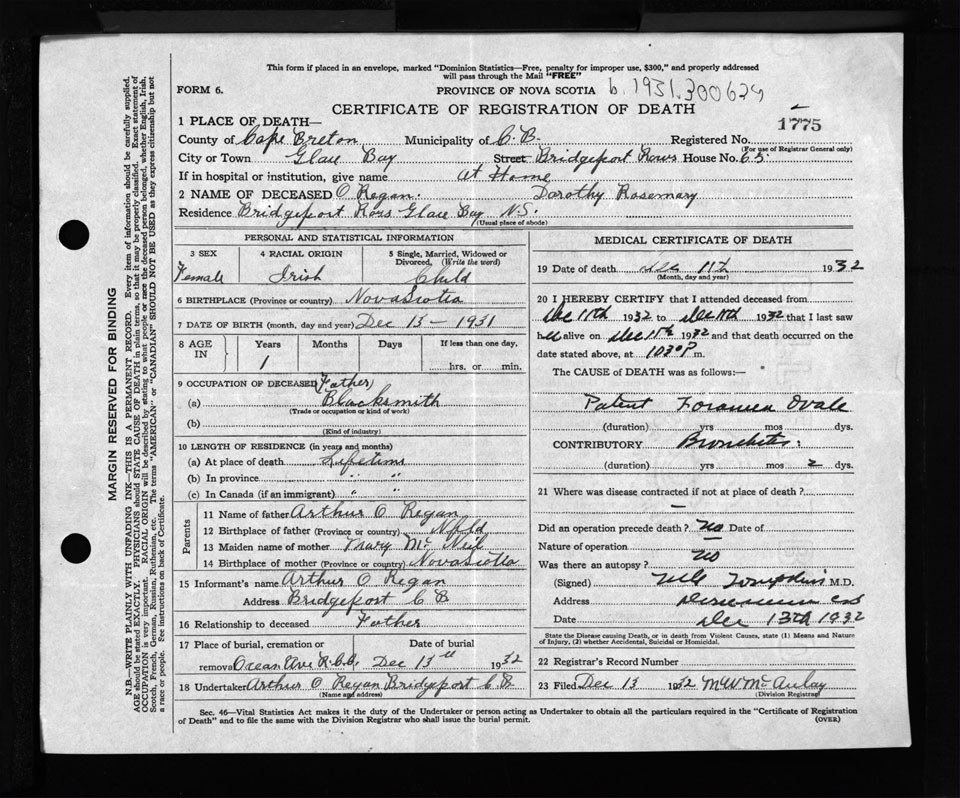 This form if placed in an envelope, marked "Dominion Statistics—Free, penalty for improper use, $300," and properly addressed
will pass through the Mail "FREE"
FORM 6.
PROVINCE OF NOVA SCOTIA b. 1931.300634
CERTIFICATE OF REGISTRATION OF DEATH
1775
1 PLACE OF DEATH—
County of Cape Breton Municipality of C.B. Registered No.
(For use of Registrar General only)
City or Town Glace Bay Street Bridgeport Rows House No. 65.
If in hospital or institution, give name at Home
2 NAME OF DECEASED O Regan. Dorothy Rosemary
Residence Bridgeport Rows Glace Bay N.S.
(Usual place of abode)
PERSONAL AND STATISTICAL INFORMATION
3 SEX 4 RACIAL ORIGIN 5 Single, Married, Widowed or Divorced, (Write the word)
Female Irish Child
6 BIRTHPLACE (Province or country) Nova Scotia
7 DATE OF BIRTH (month, day and year) Dec 13 – 1931
8 AGE IN Years Months Days If less than one day,
1 hrs. or min.
9 OCCUPATION OF DECEASED (Father)
(a) Blacksmith
(Trade or occupation or kind of work)
(b)
(Kind of industry)
10 LENGTH OF RESIDENCE (in years and months)
(a) At place of death Lifetime
(b) In province " "
(c) In Canada (if an immigrant) " "
Parents
11 Name of father Arthur O Regan
12 Birthplace of father (Province or country) Nfld
13 Maiden name of mother Mc Neil
14 Birthplace of mother (Province or country) Nova Scotia
15 Informant's name Arthur O Regan
Address Bridgeport C B
16 Relationship to deceased Father
17 Place of burial, cremation or Date of burial
removal Ocean Ave R.C.C. Dec 13th 1932
18 Undertaker Arthur O Regan Bridgeport C B
(Name and address)
MEDICAL CERTIFICATE OF DEATH
19 Date of death Dec 11th 1932
(Month, day and year)
20 I HEREBY CERTIFY that I attended deceased from
Dec 11th 1932 to Dec 11th 1932 that I last saw
her alive on Dec 11th 1932 and that death occurred on the
date stated above, at m.
The CAUSE of DEATH was as follows:—
Patent Foramen Ovale
(duration) yrs mos dys.
CONTRIBUTORY Bronchitis.
(duration) yrs mos 2 dys.
21 Where was disease contracted if not at place of death?
–
Did an operation precede death? no Date of
Nature of operation
Was there an autopsy? no
(Signed) Tompkins M.D.
Address
Date Dec 13th 1932
State the Disease causing Death, or in death from Violent Causes, state (1) Means and Nature
of Injury, (2) whether Accidental, Suicidal or Homicidal.
22 Registrar's Record Number
23 Filed Dec 13 1932 M W McAulay
(Division Registrar)
Sec. 46—Vital Statistics Act makes it the duty of the Undertaker or person acting as Undertaker to obtain all the particulars required in the "Certificate of Registration
of Death" and to file the same with the Division Registrar who shall issue the burial permit. (OVER)
MARGIN RESERVED FOR BINDING
N.B.—WRITE PLAINLY WITH UNFADING INK—THIS IS A PERMANENT RECORD. Every item of information should be carefully supplied.
AGE should be stated EXACTLY. PHYSICIANS should STATE CAUSE OF DEATH in plain terms, so that it may be properly classified. Exact statement of
OCCUPATION is very important. RACIAL ORIGIN will be described by stating to what people or race the deceased person belonged, whether English, Irish,
Scotch, French, German, Russian, Ruthenian, etc. The terms "AMERICAN" or "CANADIAN" SHOULD NOT BE USED as they express citizenship but not
a race or people. See instructions on back of Certificate.